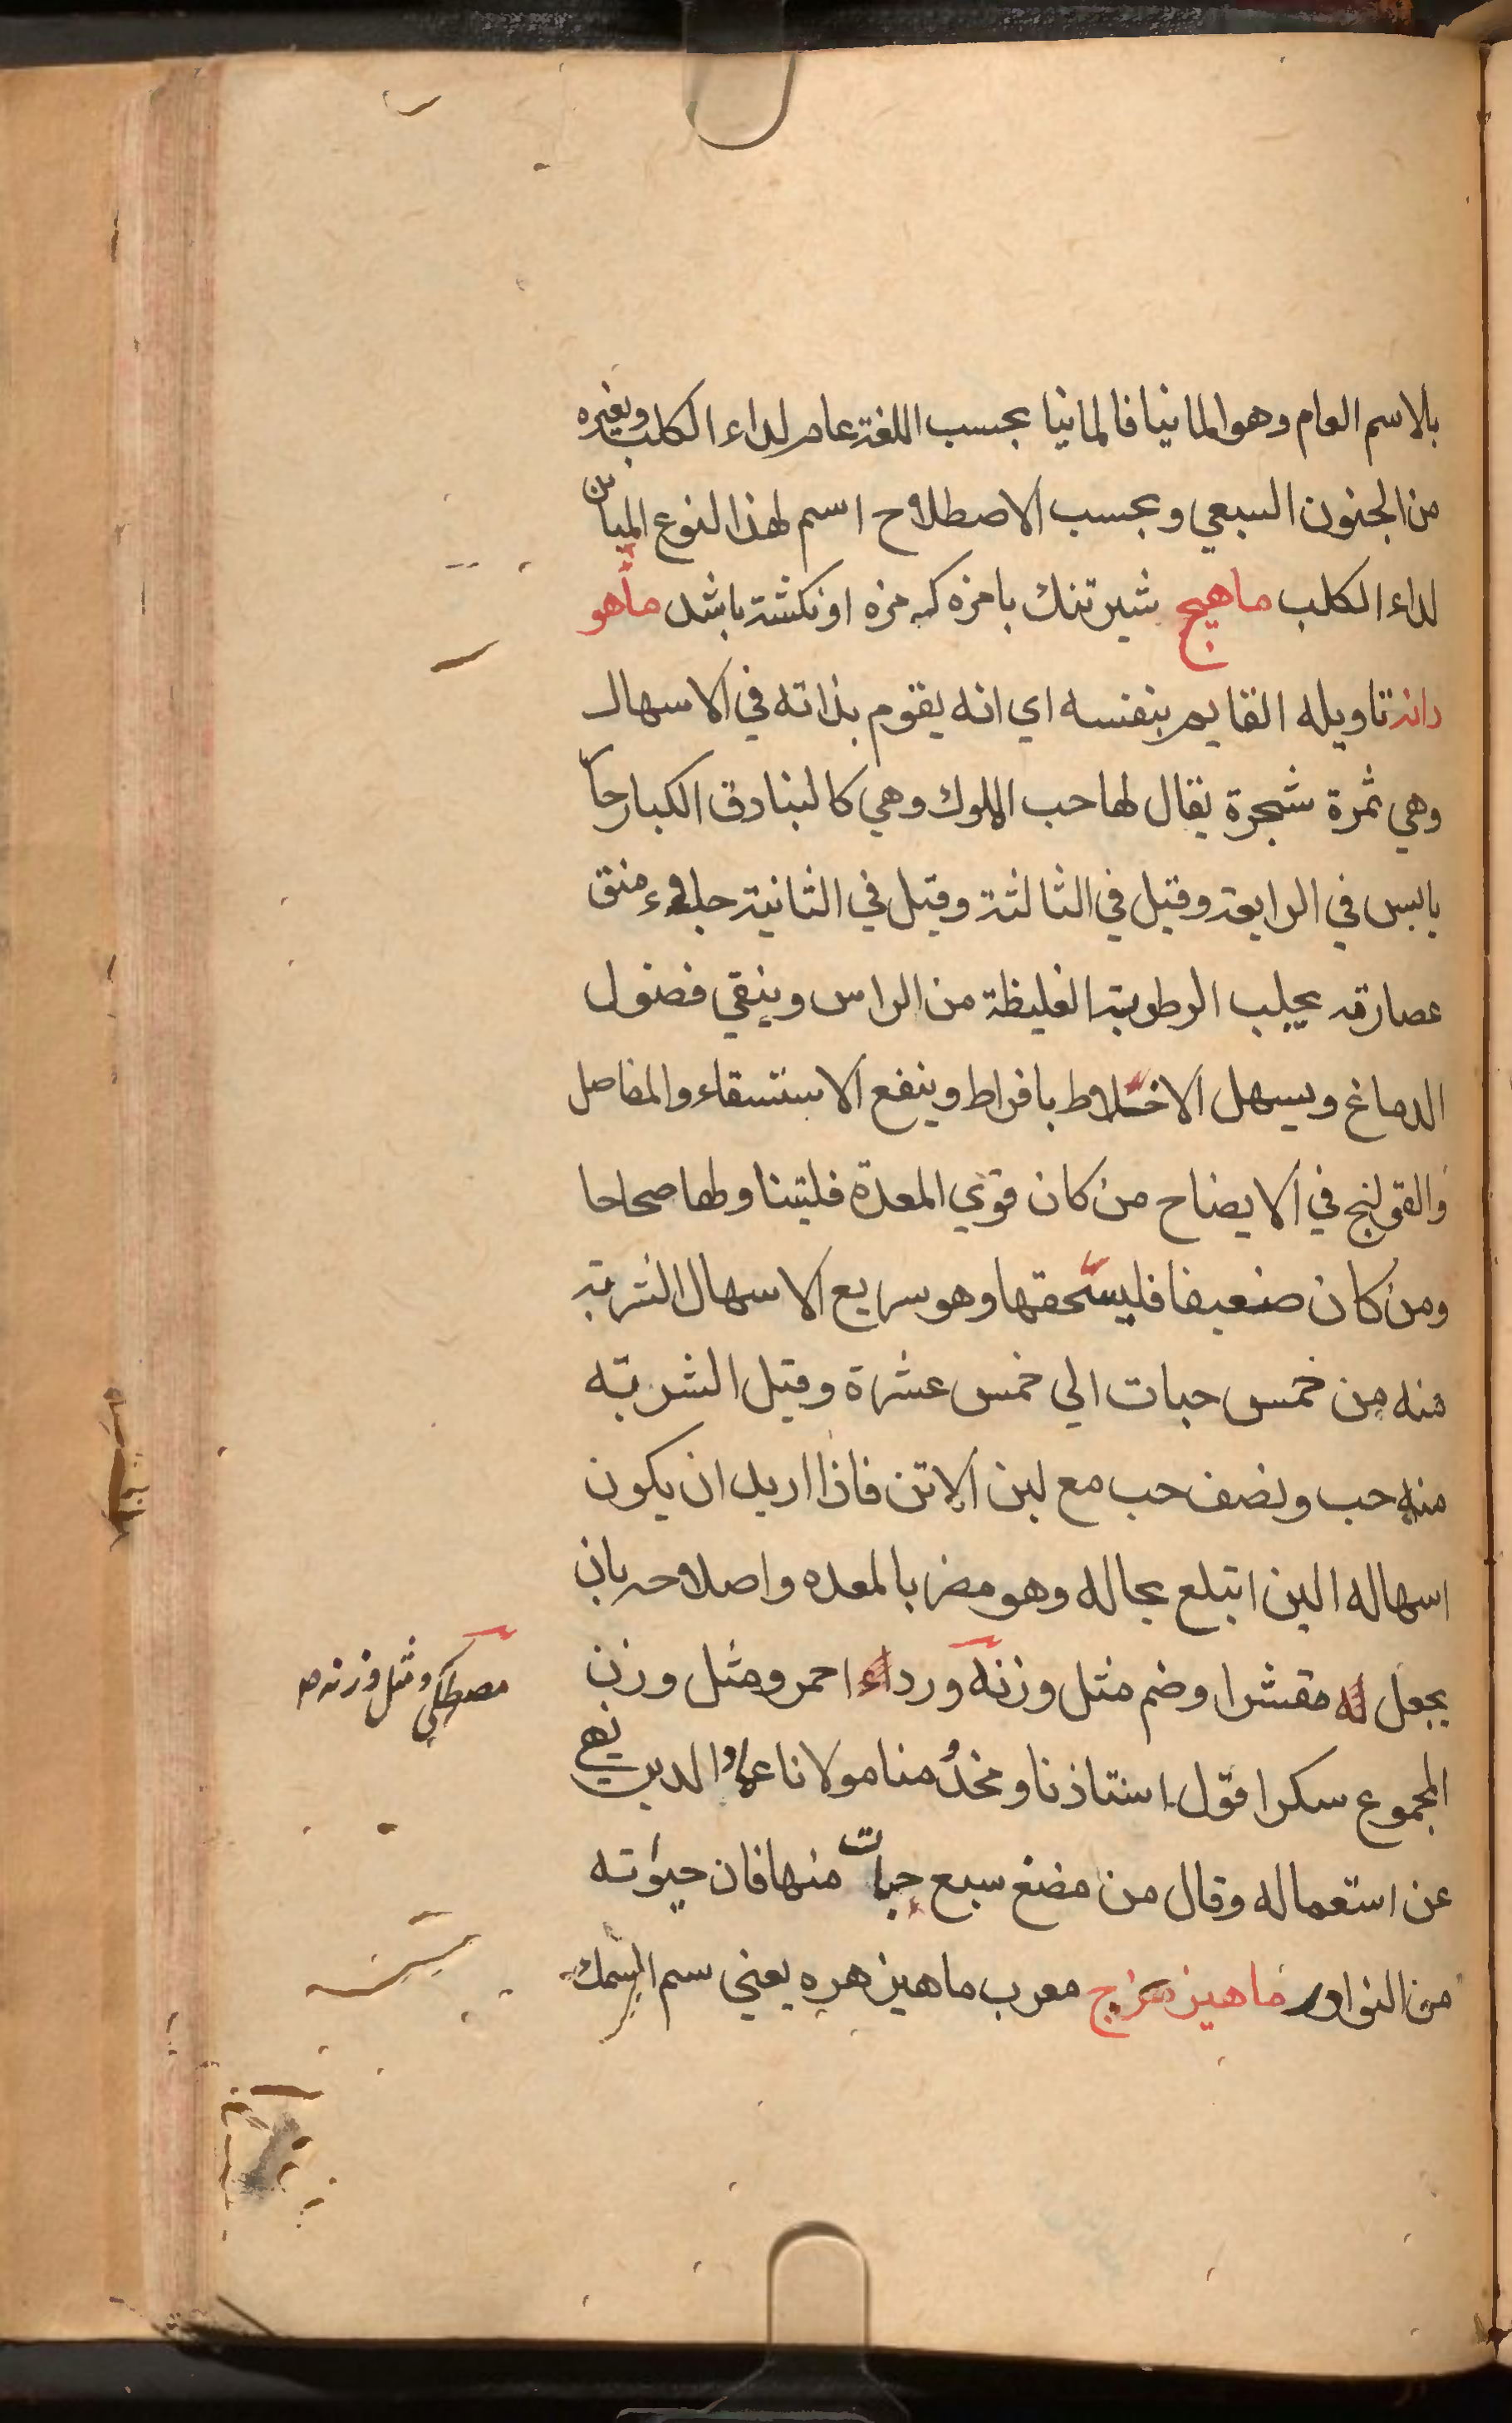 بالاسم العام وهو المانيا فالمانيا بحسب اللغة عام لداء الكلب وبغيره
من الجنون السبعي وبحسب الاصطلاح اسم لهذا النوع المباين
لداء الكلب ماهيج شير تنك بامزه كه مزه او نكشته باشد ماهو
دانه تاويله القايم بنفسه اي انه يقوم بذاته في الاسهال
وهي ثمرة شجرة يقال لها حب الملوك وهي كالبنادق الكبار حار
يابس في الرابعة وقيل في الثالثة وقيل في الثانية منق
عصارته يجلب الرطوبة الغليظة من الراس وينقي فضول
الدماغ ويسهل الاخلاط بافراط وينفع الاستسقاء والمفاصل
والقولنج في الايضاح من كان قوي المعدة فليتناولها صحاحا
ومن كان ضعيفا فليسحقها وهو سريع الاسهال الشربة
منه من خمس حبات الي خمس عشرة وقيل الشربة
منه حب ونصف حب مع لبن الاتن فاذا اريد ان يكون
اسهاله الين ابتلع بحاله وهو مضر بالمعده واصلاحه بان
يجعل مقشرا وضم مثل وزنه وردا احمر ومثل وزن
مصطكي ومثل وزنه صح
المجموع سكرا قول استاذنا ومخدومنا مولانا عماد الدين نهي
عن استعماله وقال من مضغ سبع حبات منها فان حيوته
من النوادر ماهيزهرج معرب ماهيزهره يعني سم السمك